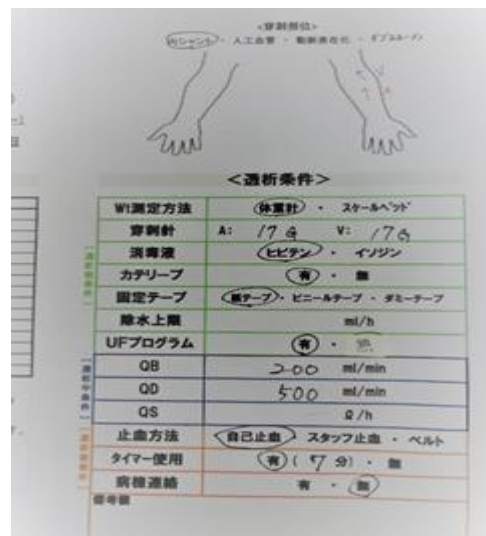 <穿刺部位>
内シャント ・ 人工血管 ・ 動脈表在化 ・ ダブルルーメン
<透析条件>
Wt測定方法 体重計 ・ スケールベッド
穿刺針 A: 17G V: 17G
消毒液 ヒビテン ・ イソジン
カテリープ 有 ・ 無
固定テープ 紙テープ ・ ビニールテープ ・ ダミーテープ
除水上限 ml/h
UFプログラム 有 ・ 無
QB 200 ml/min
QD 500 ml/min
QS ℓ/h
止血方法 自己止血 ・ スタッフ止血 ・ ベルト
タイマー使用 有 ( 7 分) ・ 無
病棟連絡 有 ・ 無
備考欄